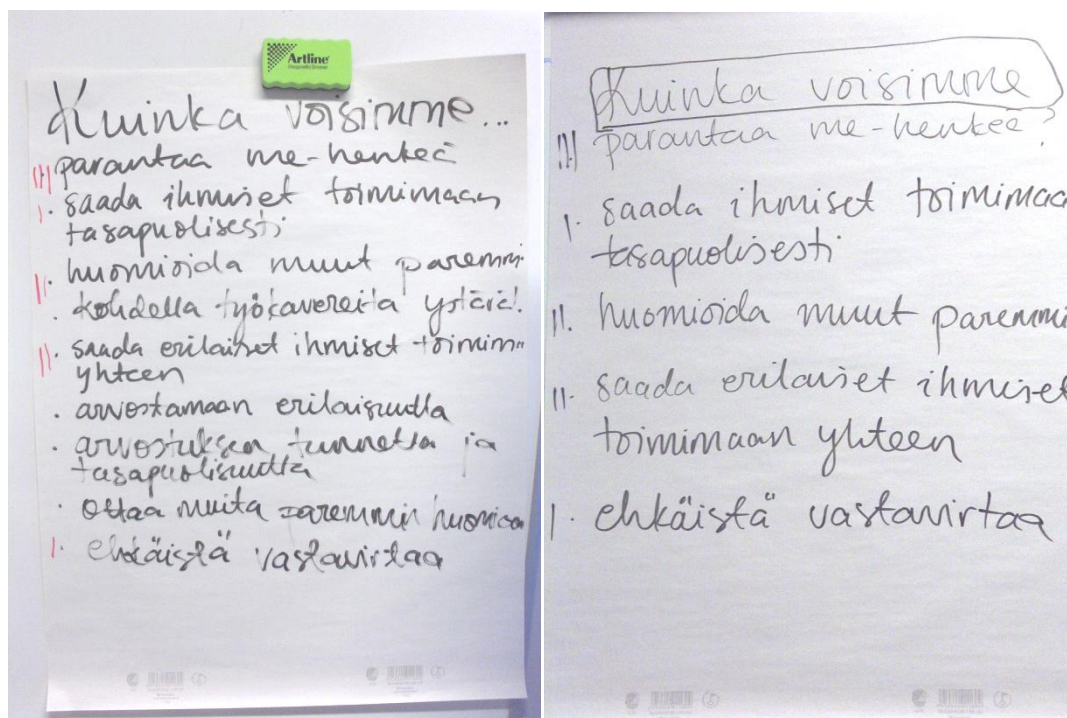 Artline
Kuinka voisimme...
parantaa me-henkeä
· saada ihmiset toimimaan
tasapuolisesti
· huomioida muut paremmi
· kohdella työkavereita
· saada erilaiset ihmiset toimim
yhteen
· arvostamaan erilaisuutta
· arvostuksen tunnetta ja
tasapuolisuutta
· ottaa muita paremmin huomioon
· ehkäistä vastavirtaa
Kuinka voisimme
parantaa me-henkeä?
· saada ihmiset toimimaa
tasapuolisesti
· huomioida muut paremmi
· saada erilaiset ihmiset
toimimaan yhteen
· ehkäistä vastavirtaa